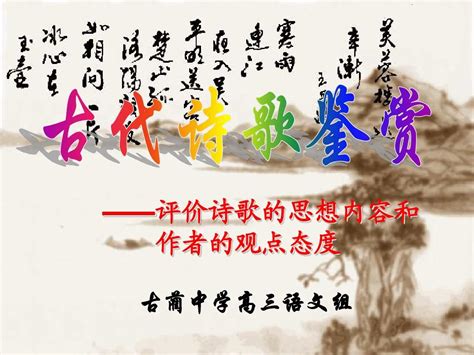 芙蓉楼
辛渐
王
寒雨
连江
夜入吴
平明送客
楚山孤
洛阳亲友
如相问一片
冰心在
玉壶
古代诗歌鉴赏
——评价诗歌的思想内容和
作者的观点态度
古蔺中学高三语文组